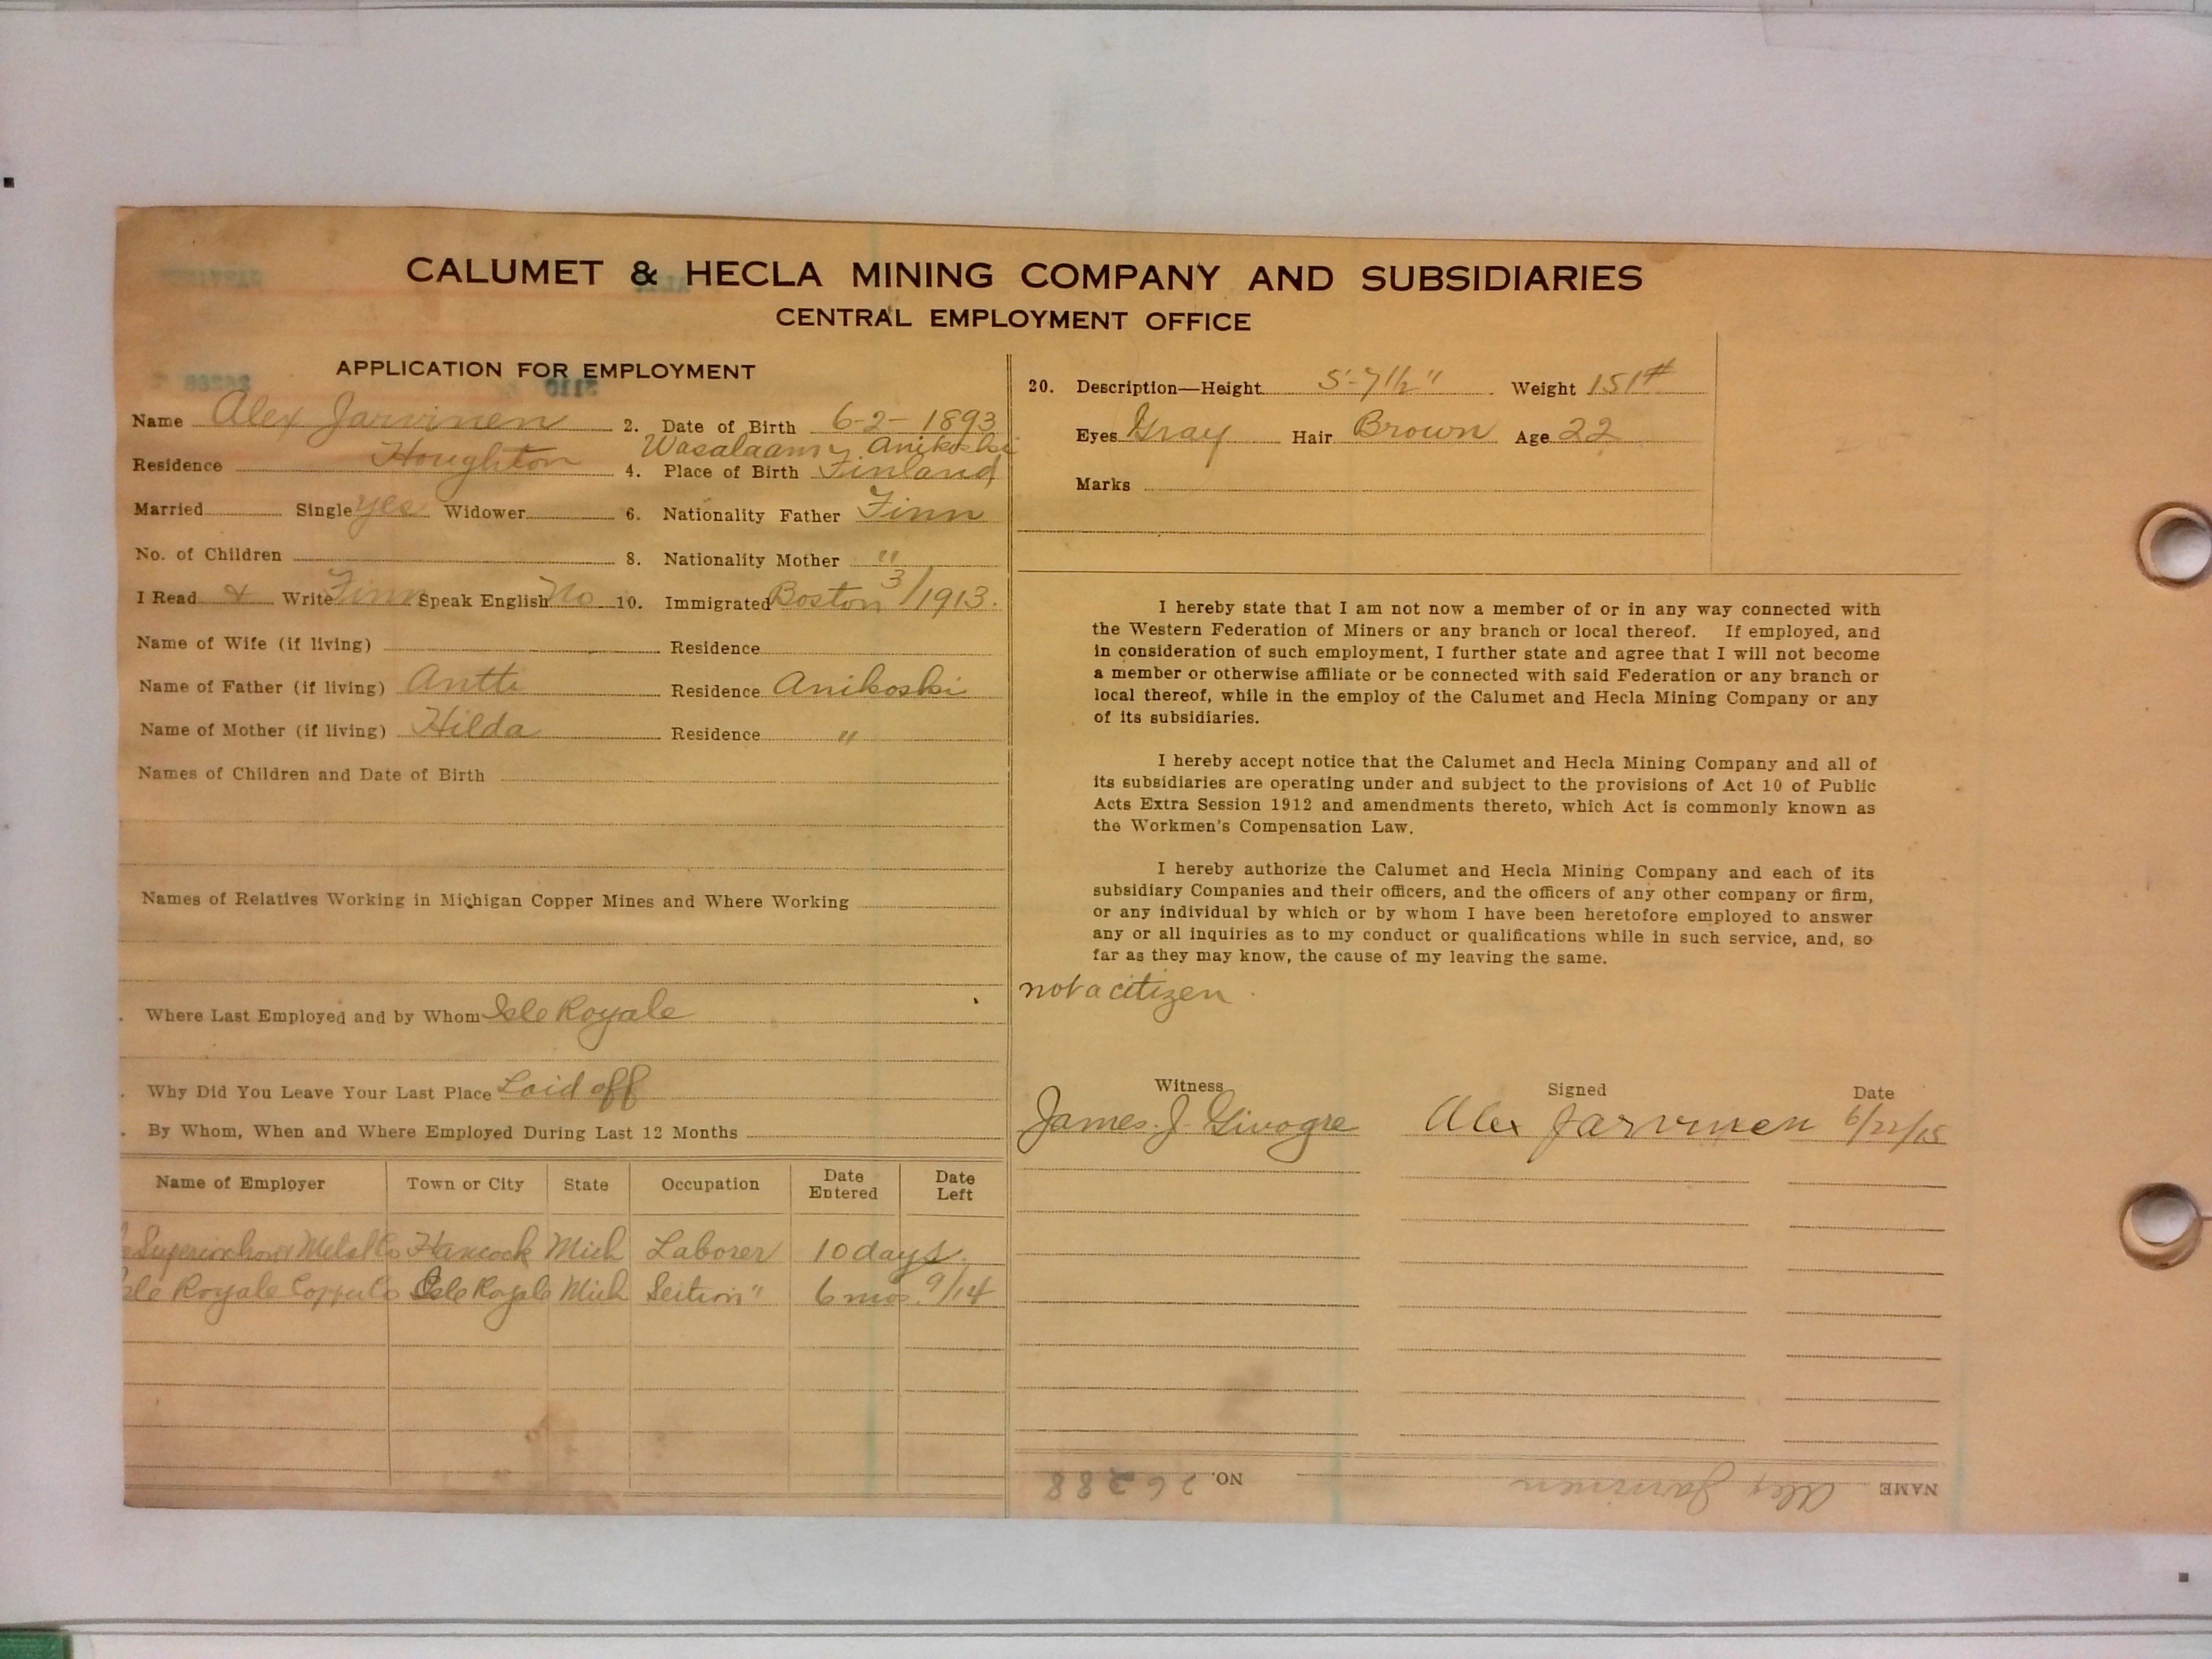 CALUMET & HECLA MINING COMPANY AND SUBSIDIARIES
CENTRAL EMPLOYMENT OFFICE
APPLICATION FOR EMPLOYMENT
Name Alex Jarvinen 2. Date of Birth 6-2-1893
Wasalaani Anikoski
Residence Houghton 4. Place of Birth Finland
Married Single yes Widower 6. Nationality Father Finn
No. of Children 8. Nationality Mother "
I Read & Write Finn Speak English No 10. Immigrated Boston 3/1913.
Name of Wife (if living) Residence
Name of Father (if living) Antti Residence Anikoski
Name of Mother (if living) Hilda Residence "
Names of Children and Date of Birth
Names of Relatives Working in Michigan Copper Mines and Where Working
Where Last Employed and by Whom Isle Royale
Why Did You Leave Your Last Place Laid off
By Whom, When and Where Employed During Last 12 Months
Name of Employer Town or City State Occupation Date Entered Date Left
Hancock Mich Laborer 10 days.
Royale Copper Co Isle Royale Mich Section " 6 mos. 9/14
20. Description—Height 5'-7 1/2" Weight 151#
Eyes Gray Hair Brown Age 22
Marks
I hereby state that I am not now a member of or in any way connected with
the Western Federation of Miners or any branch or local thereof. If employed, and
in consideration of such employment, I further state and agree that I will not become
a member or otherwise affiliate or be connected with said Federation or any branch or
local thereof, while in the employ of the Calumet and Hecla Mining Company or any
of its subsidiaries.
I hereby accept notice that the Calumet and Hecla Mining Company and all of
its subsidiaries are operating under and subject to the provisions of Act 10 of Public
Acts Extra Session 1912 and amendments thereto, which Act is commonly known as
the Workmen's Compensation Law.
I hereby authorize the Calumet and Hecla Mining Company and each of its
subsidiary Companies and their officers, and the officers of any other company or firm,
or any individual by which or by whom I have been heretofore employed to answer
any or all inquiries as to my conduct or qualifications while in such service, and, so
far as they may know, the cause of my leaving the same.
not a citizen.
Witness Signed Date
James J. Givogre Alex Jarvinen 6/22/15
NAME Alex Jarvinen NO. 26288